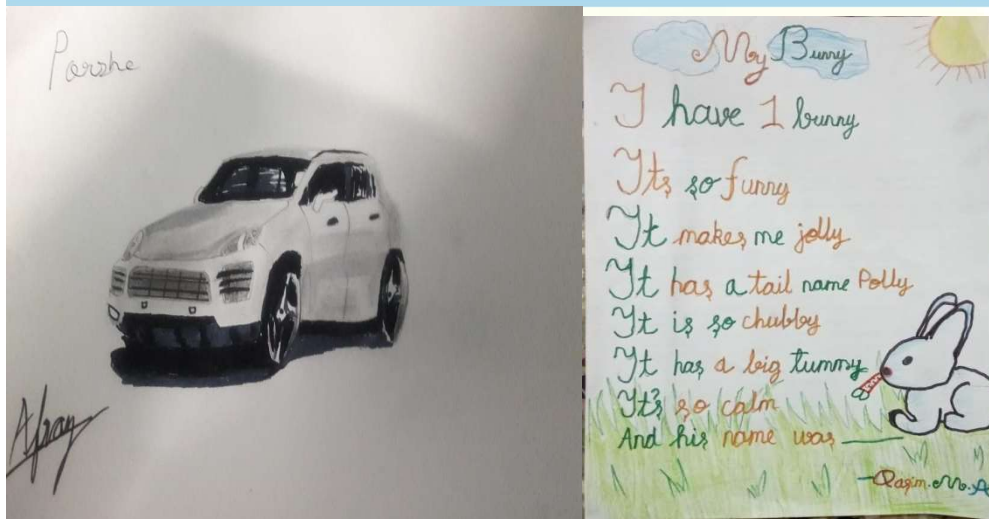 Porshe
Afray
My Bunny
I have 1 bunny
Its so funny
It makes me jolly
It has a tail name Polly
It is so chubby
It has a big tummy
It's so calm
And his name was ____
-Qasim.M.A